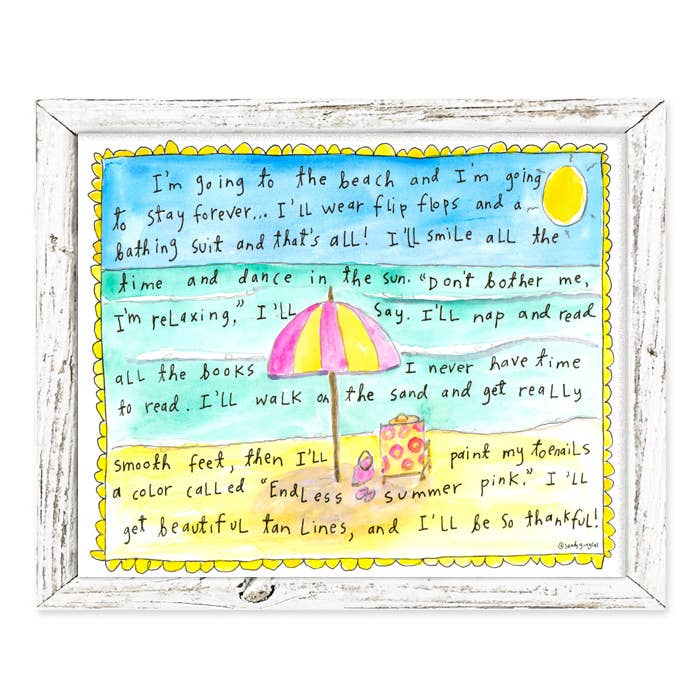 I'm going to the beach and I'm going
to stay forever... I'll wear flip flops and a
bathing suit and that's all! I'll smile all the
time and dance in the sun. "Don't bother me,
I'm relaxing," I'll say. I'll nap and read
all the books I never have time
to read. I'll walk on the sand and get really
smooth feet, then I'll paint my toenails
a color called "Endless summer pink." I'll
get beautiful tan lines, and I'll be so thankful!